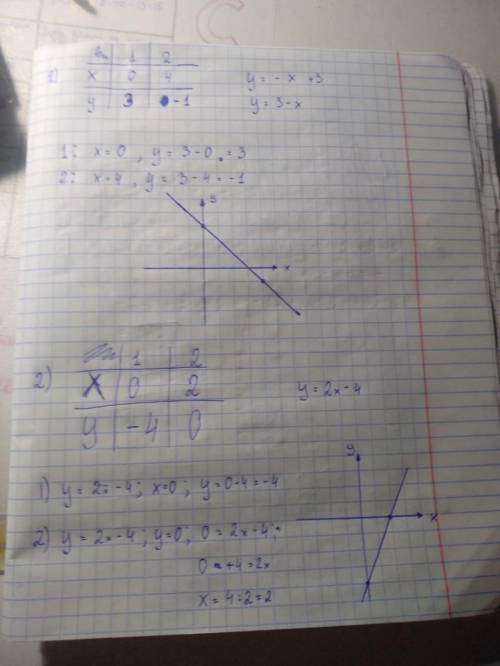 1 2
1) x 0 4 y = -x +3
y 3 -1 y = 3-x
1: x=0 , y = 3-0 = 3
2: x=4 , y = 3-4 = -1
y
x
1 2
2) X 0 2 y = 2x-4
y -4 0
y
1) y = 2x-4; x=0; y=0-4=-4
x
2) y = 2x-4; y=0; 0=2x-4;
+4=2x
x = 4:2=2